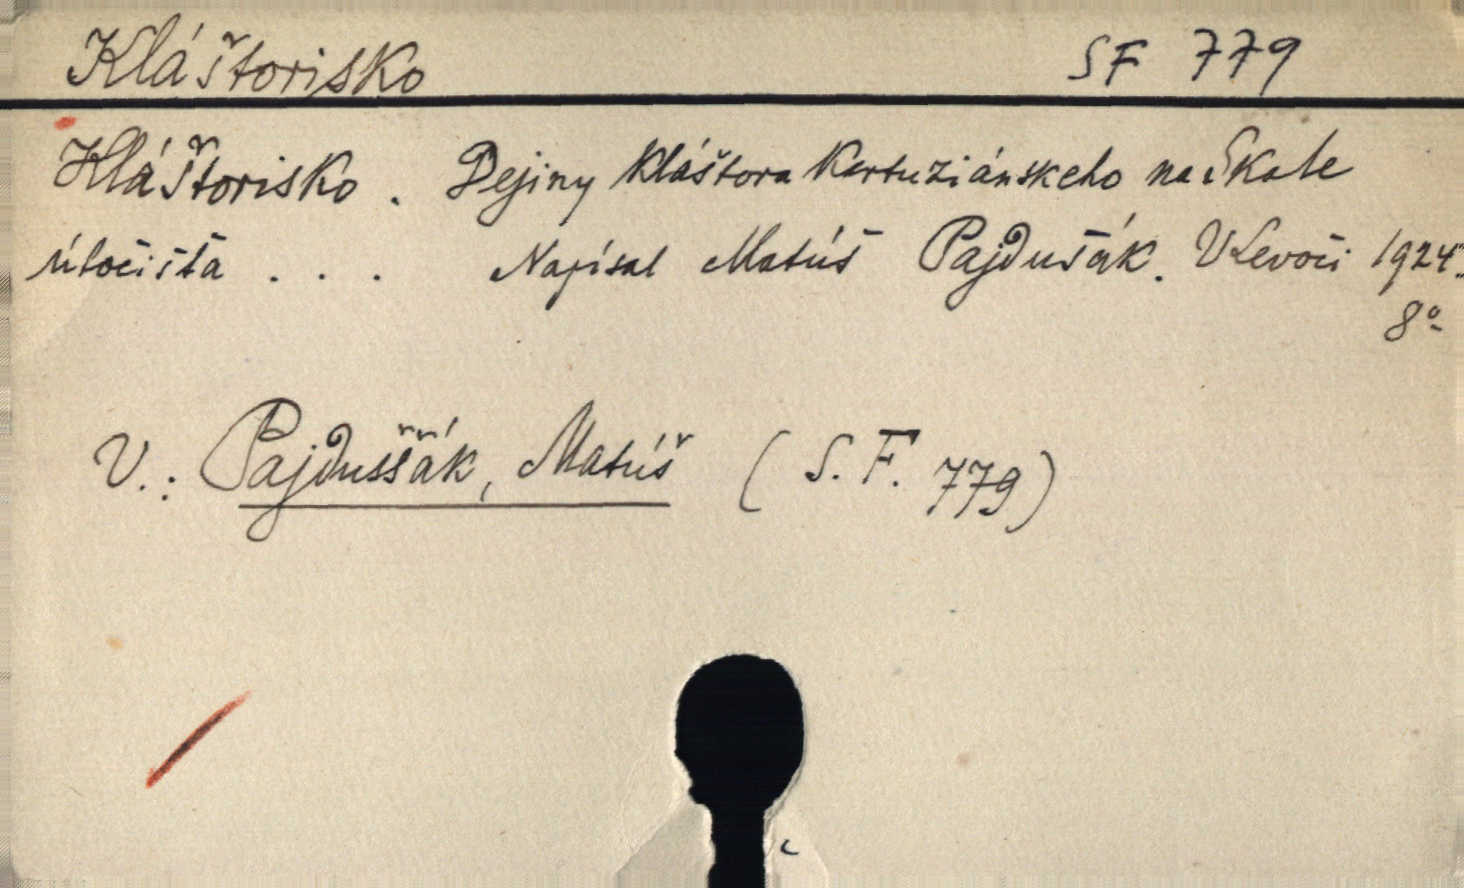 Kláštorisko SF 779
Kláštorisko. Dejiny kláštora Kartuziánskeho na Skale
útočišťa . . . Napísal Matúš Pajdušák. V Levoči 1924.
8°
V.: Pajduššák, Matúš (S. F. 779)